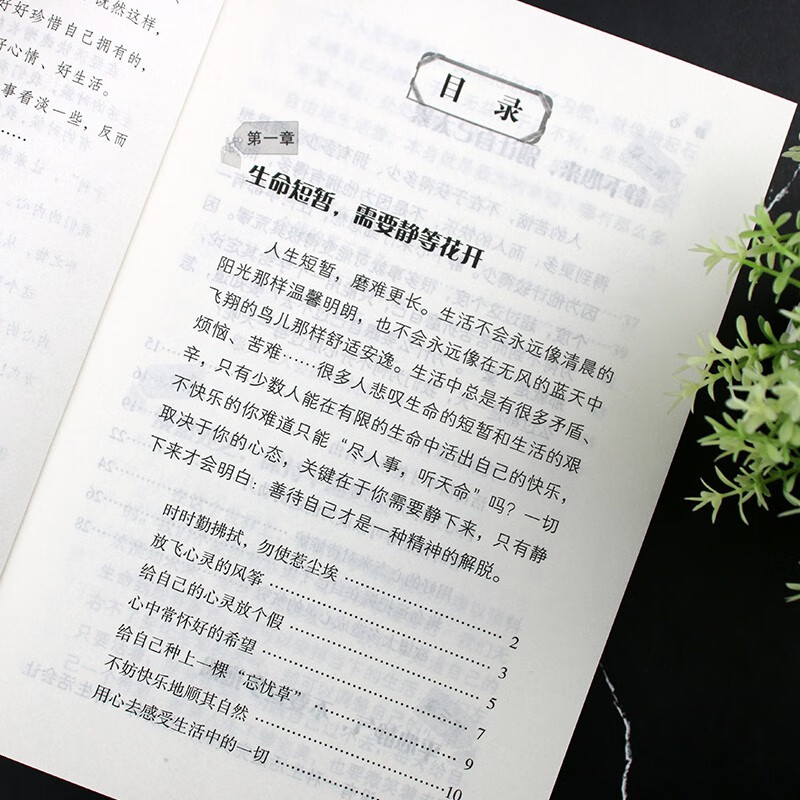 既然这样，
好好珍惜自己拥有的，
好心情、好生活。
事看淡一些，反而
……
目录
第一章
生命短暂，需要静等花开
人生短暂，磨难更长。生活不会永远像清晨的
阳光那样温馨明朗，也不会永远像在无风的蓝天中
飞翔的鸟儿那样舒适安逸。生活中总是有很多矛盾、
烦恼、苦难……很多人悲叹生命的短暂和生活的艰
辛，只有少数人能在有限的生命中活出自己的快乐，
不快乐的你难道只能“尽人事，听天命”吗？一切
取决于你的心态，关键在于你需要静下来，只有静
下来才会明白：善待自己才是一种精神的解脱。
时时勤拂拭，勿使惹尘埃 …………… 2
放飞心灵的风筝 …………… 3
给自己的心灵放个假 …………… 5
心中常怀好的希望 …………… 7
给自己种上一棵“忘忧草” …………… 9
不妨快乐地顺其自然 …………… 10
用心去感受生活中的一切 ……………